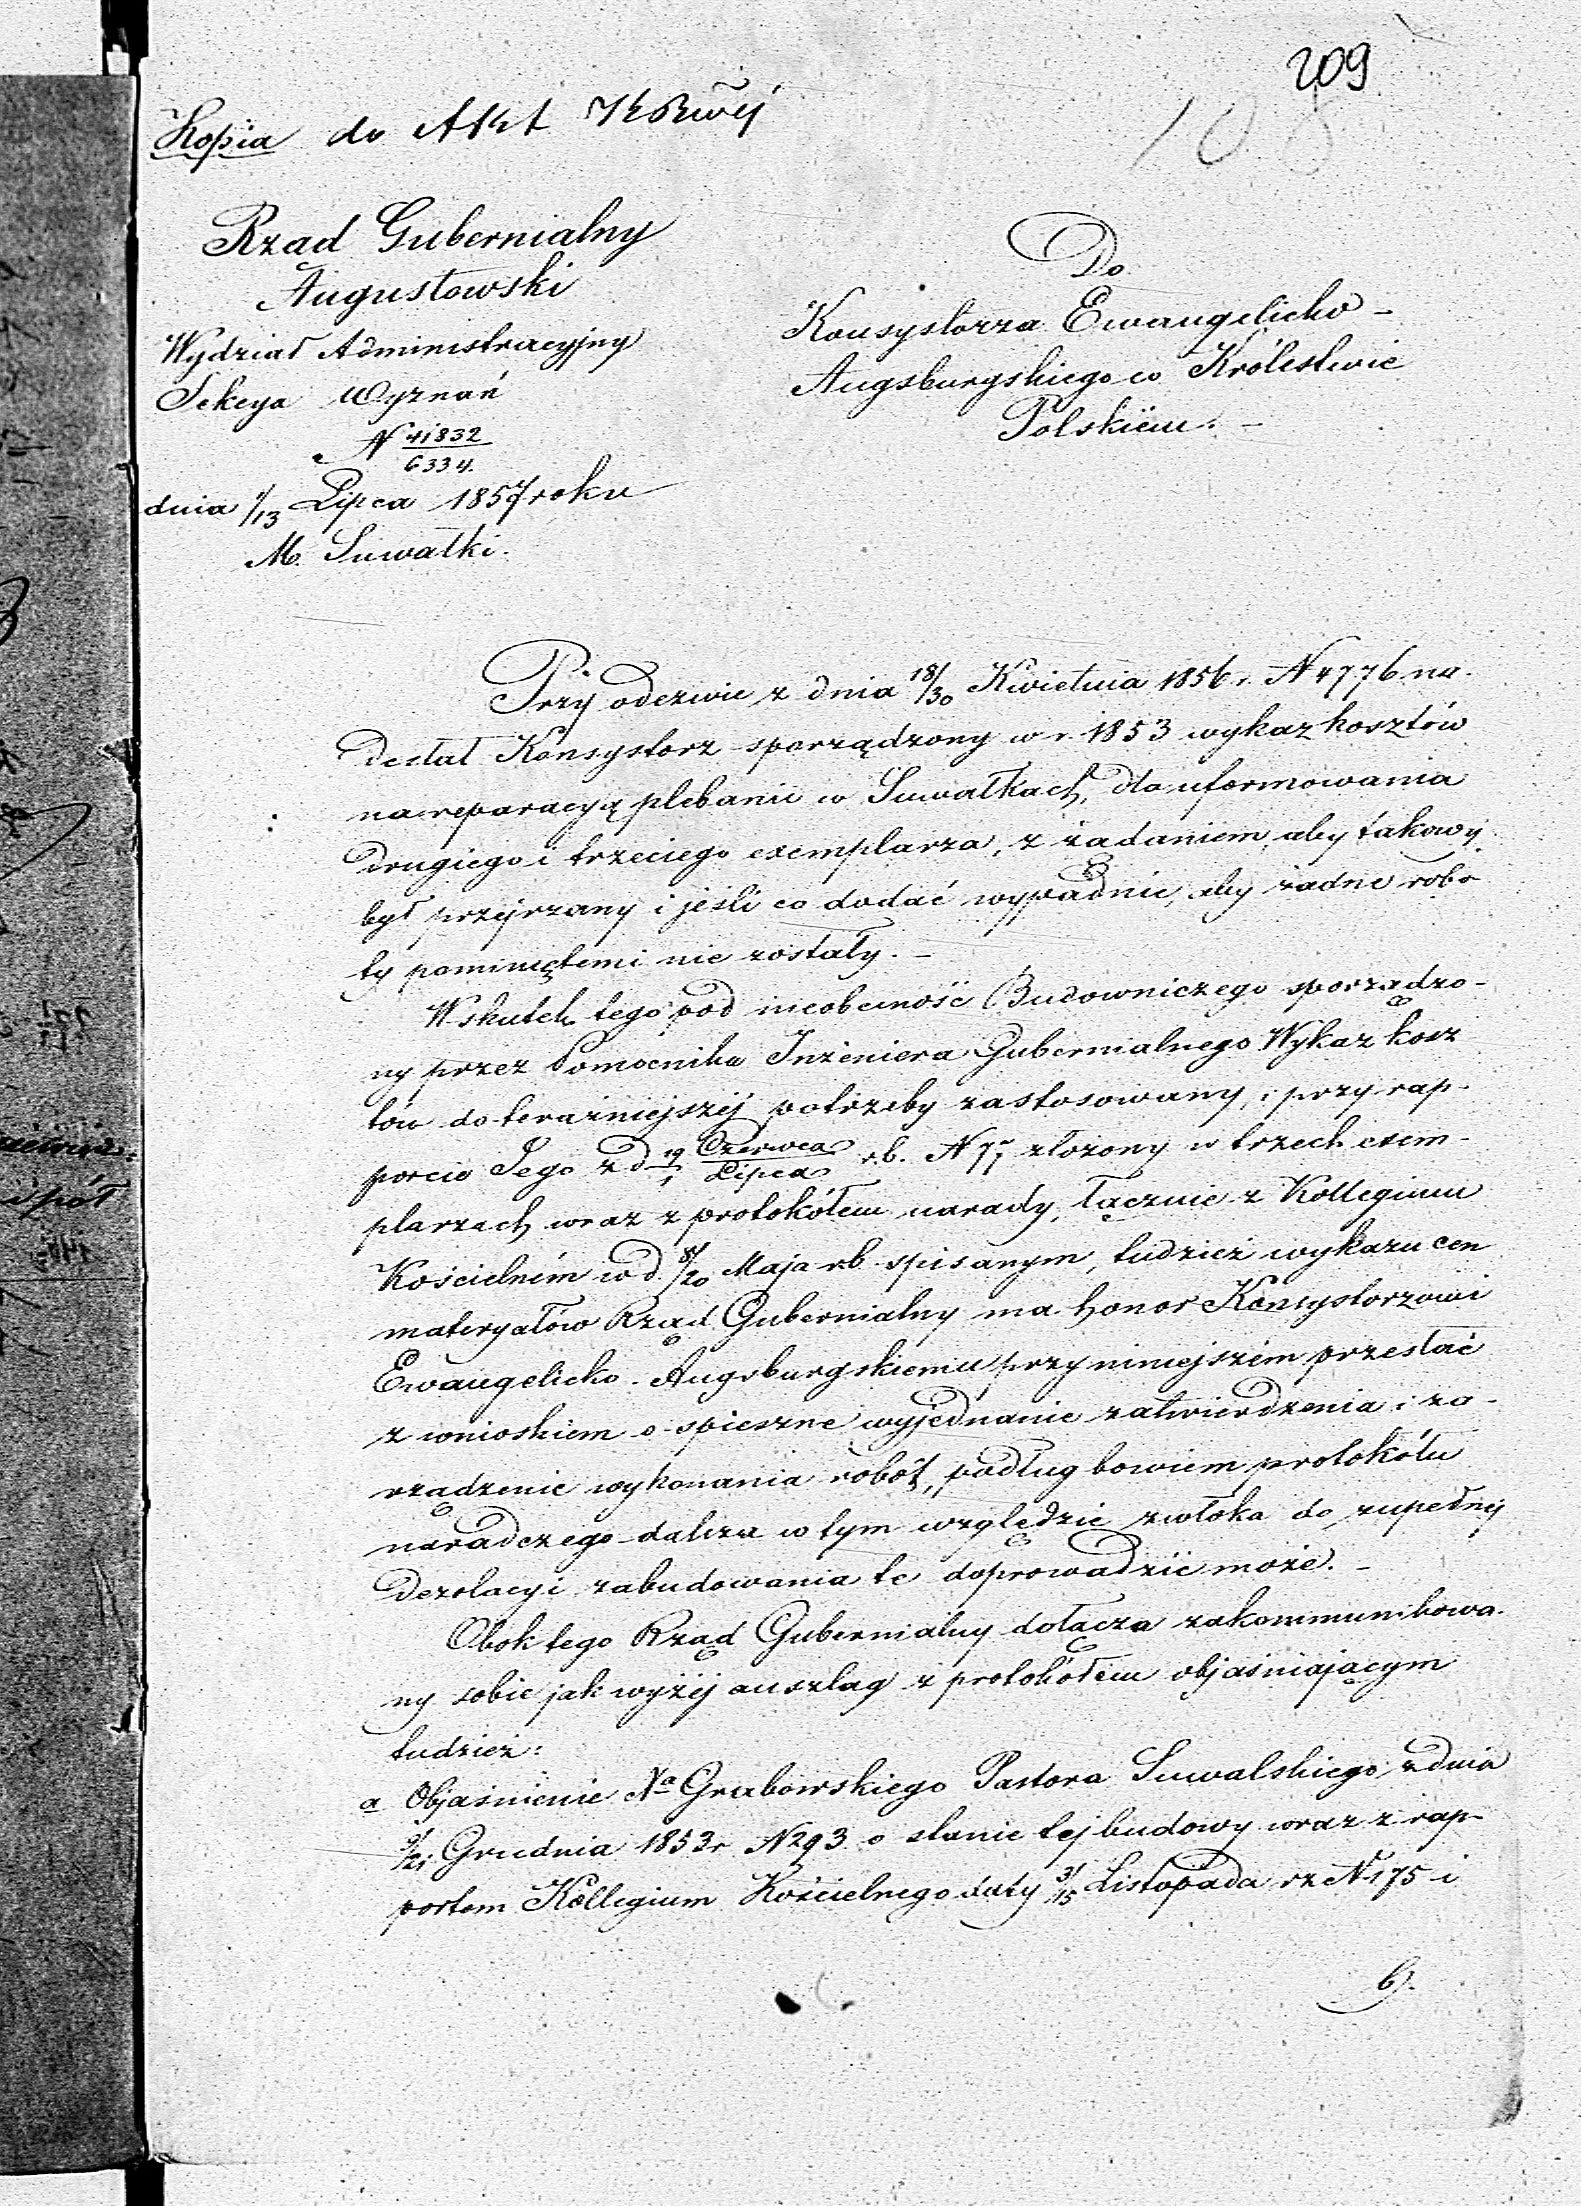 209
108
Kopia do Akt
Rząd Gubernialny
Augustowski
Wydział Administracyjny
Sekcya Wyznań
N 41832/6334.
dnia 1/13 Lipca 1857 roku
M. Suwałki.
Do
Konsystorza Ewangelicko-
Augsburgskiego w Królestwie
Polskiém. -
Przy odezwie z dnia 18/30 Kwietnia 1856 r. N 4776 na-
desłał Konsystorz sporządzony w r. 1853 wykaz kosztów
na reparacyą plebanii w Suwałkach, dla uformowania
drugiego i trzeciego exemplarza, z żądaniem, aby takowy
był przejrzany i jeśli co dodać wypadnie, aby żadne robo
ty pominiętemi nie zostały. -
Wskutek tego pod nieobecność Budowniczego sporządzo-
ny przez Pomocnika Inżeniera Gubernialnego Wykaz kosz
tów do teraźniejszéj potrzeby zastosowany, i przy rap-
porcie Jego z d 19 Czerwca / 1 Lipca r.b. N 77 złożony w trzech exem-
plarzach wraz z protokółem narady, łącznie z Kollegium
Kościelném w d. 8/20 Maja rb. spisanym, tudzież wykazu cen
materyałów Rząd Gubernialny ma honor Konsystorzowi
Ewangelicko-Augsburgskiemu przy niniejszém przesłać
z wnioskiem o spieszne wyjednanie zatwierdzenia i za-
rządzenie wykonania robót, podług bowiem protokółu
naradczego dalsza w tym względzie zwłoka do zupełnéj
dezolacyi zabudowania te doprowadzić może. -
Obok tego Rząd Gubernialny dołącza zakommunikowa-
ny sobie jak wyżéj anszlag z protokółem objaśniającym
tudzież:
a Objaśnienie Xa Grabowskiego Pastora Suwalskiego z dnia
9/21 Grudnia 1853 r N 293 o stanie tej budowy wraz z rap-
portem Kollegium Kościelnego daty 3/15 Listopada rz N 175 i
b).